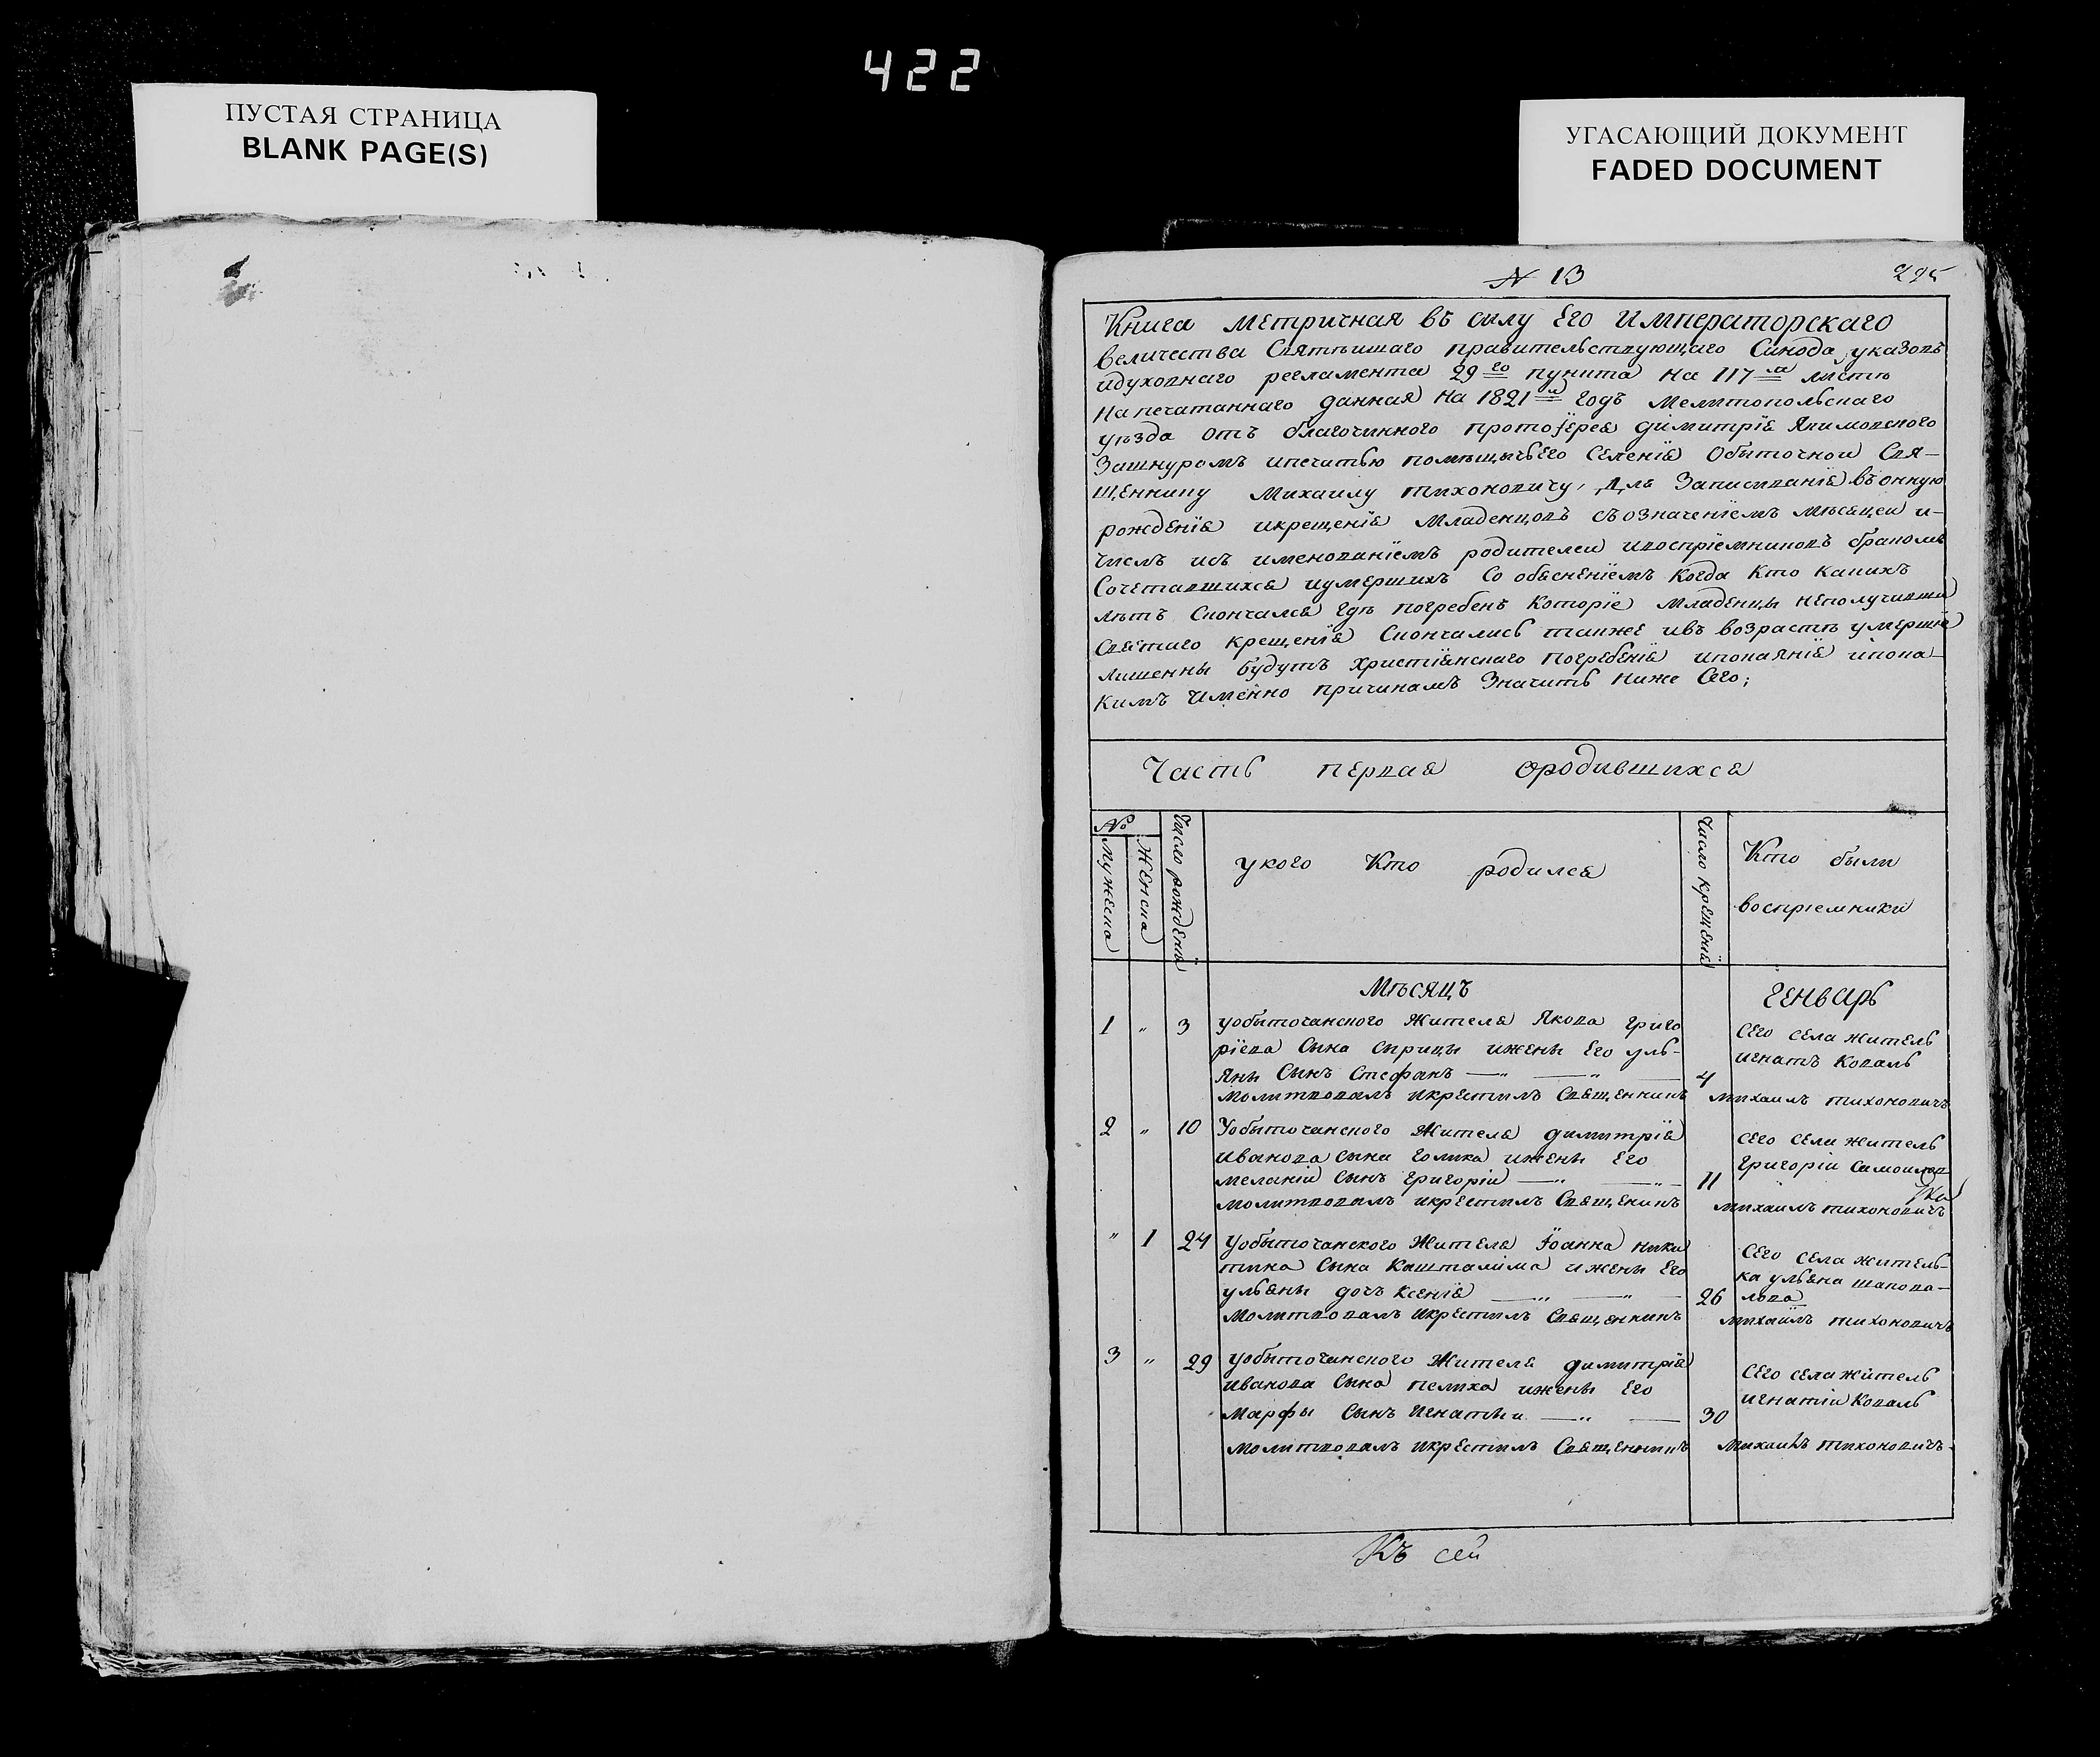 422
ПУСТАЯ СТРАНИЦА
BLANK PAGE(S)
УГАСАЮЩИЙ ДОКУМЕНТ
FADED DOCUMENT
№ 13
225
Книга метричная въ силу Его императорскаго
величества Святѣишаго правительствующаго Синода указовъ
идуховнаго регламента 29го пункта на 117м листѣ
напечатаннаго данная на 1821й годъ мелитопольскаго
уѣзда отъ благочинного протоїерея димитрїя Якимовского
Зашнуромъ ипечатью помѣщичьего Селенїя Обыточнои Свя-
щеннику Михаилу тихоновичу, для Записыванїя въонную
рожденїя икрещенїя младенцовъ съозначенїемъ мѣсяцеи и-
числъ исъ именованїемъ родителеи ивоспрїемниковъ бракомъ
Сочетавшихся иумершихъ Со обясненїемъ когда кто какихъ
лѣтъ Скончался гдѣ погребенъ которїе младенцы неполучивши
Святаго крещенїя Скончались также ивъ возрастѣ умершїе
лишенны будутъ христїянскаго погребенїя ипокаянїя ипока-
кимъ имѣнно причинамъ Значитъ ниже Сего;
Часть первая ородившихся
№
мужеска
Женска
Число рожденїя
укого Кто родился
Число крещенїя
Кто были
воспрїемники
Мѣсяцъ Генварь
1 " 3 уобыточанского Жителя Якова григо
рїева Сына Сырицы ижены Его уль-
яны Сынъ Стефанъ — " — " — 4
молитвовалъ икрестилъ Священникъ михаилъ тихоновичъ
Сего села житель
игнатъ Коваль
2 " 10 Уобыточанского Жителя димитрїя
иванова сына голика ижены Его
меланїи Сынъ григорїи — " — " — 11
молитвовалъ икрестилъ Священикъ михаилъ тихоновичъ
Сего села житель
григорїи Самоилов
ка
" 1 24 Уобыточанского Жителя Їоанна ники
тина Сына Кашталима ижены Его
ульяны дочь ксенїя — " — " — 26
молитвовалъ икрестилъ Священникъ михаилъ тихоновичъ
Сего села житель-
ка ульяна шапова-
лова
3 " 29 уобыточанского Жителя димитрїя
иванова Сына пелиха ижены Его
марфы Сынъ игнатїи — " — 30
молитвовалъ икрестилъ Священникъ михаилъ тихоновичъ
Сего села житель
игнатїи Коваль
Къ сей